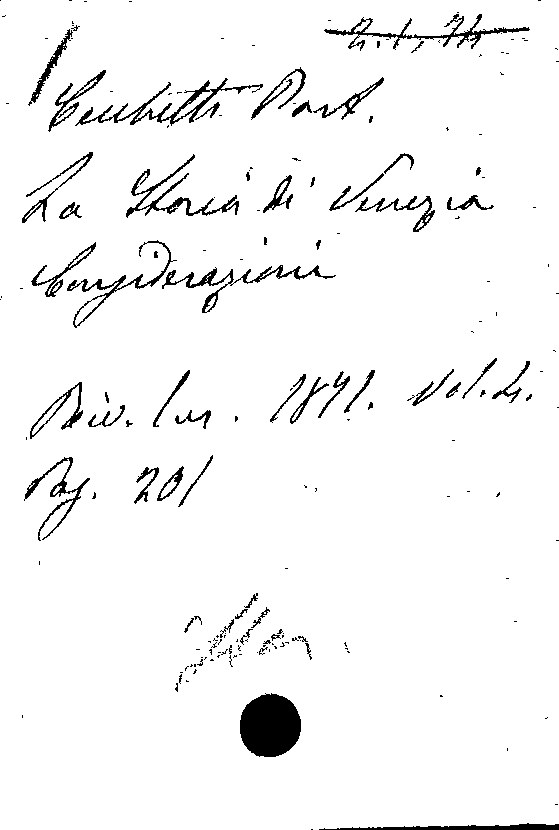 2.1.74
Cecchetti Bart.
La Storia di Venezia
Considerazioni
Riv. Eur. 1871. Vol. 4.
Pag. 201